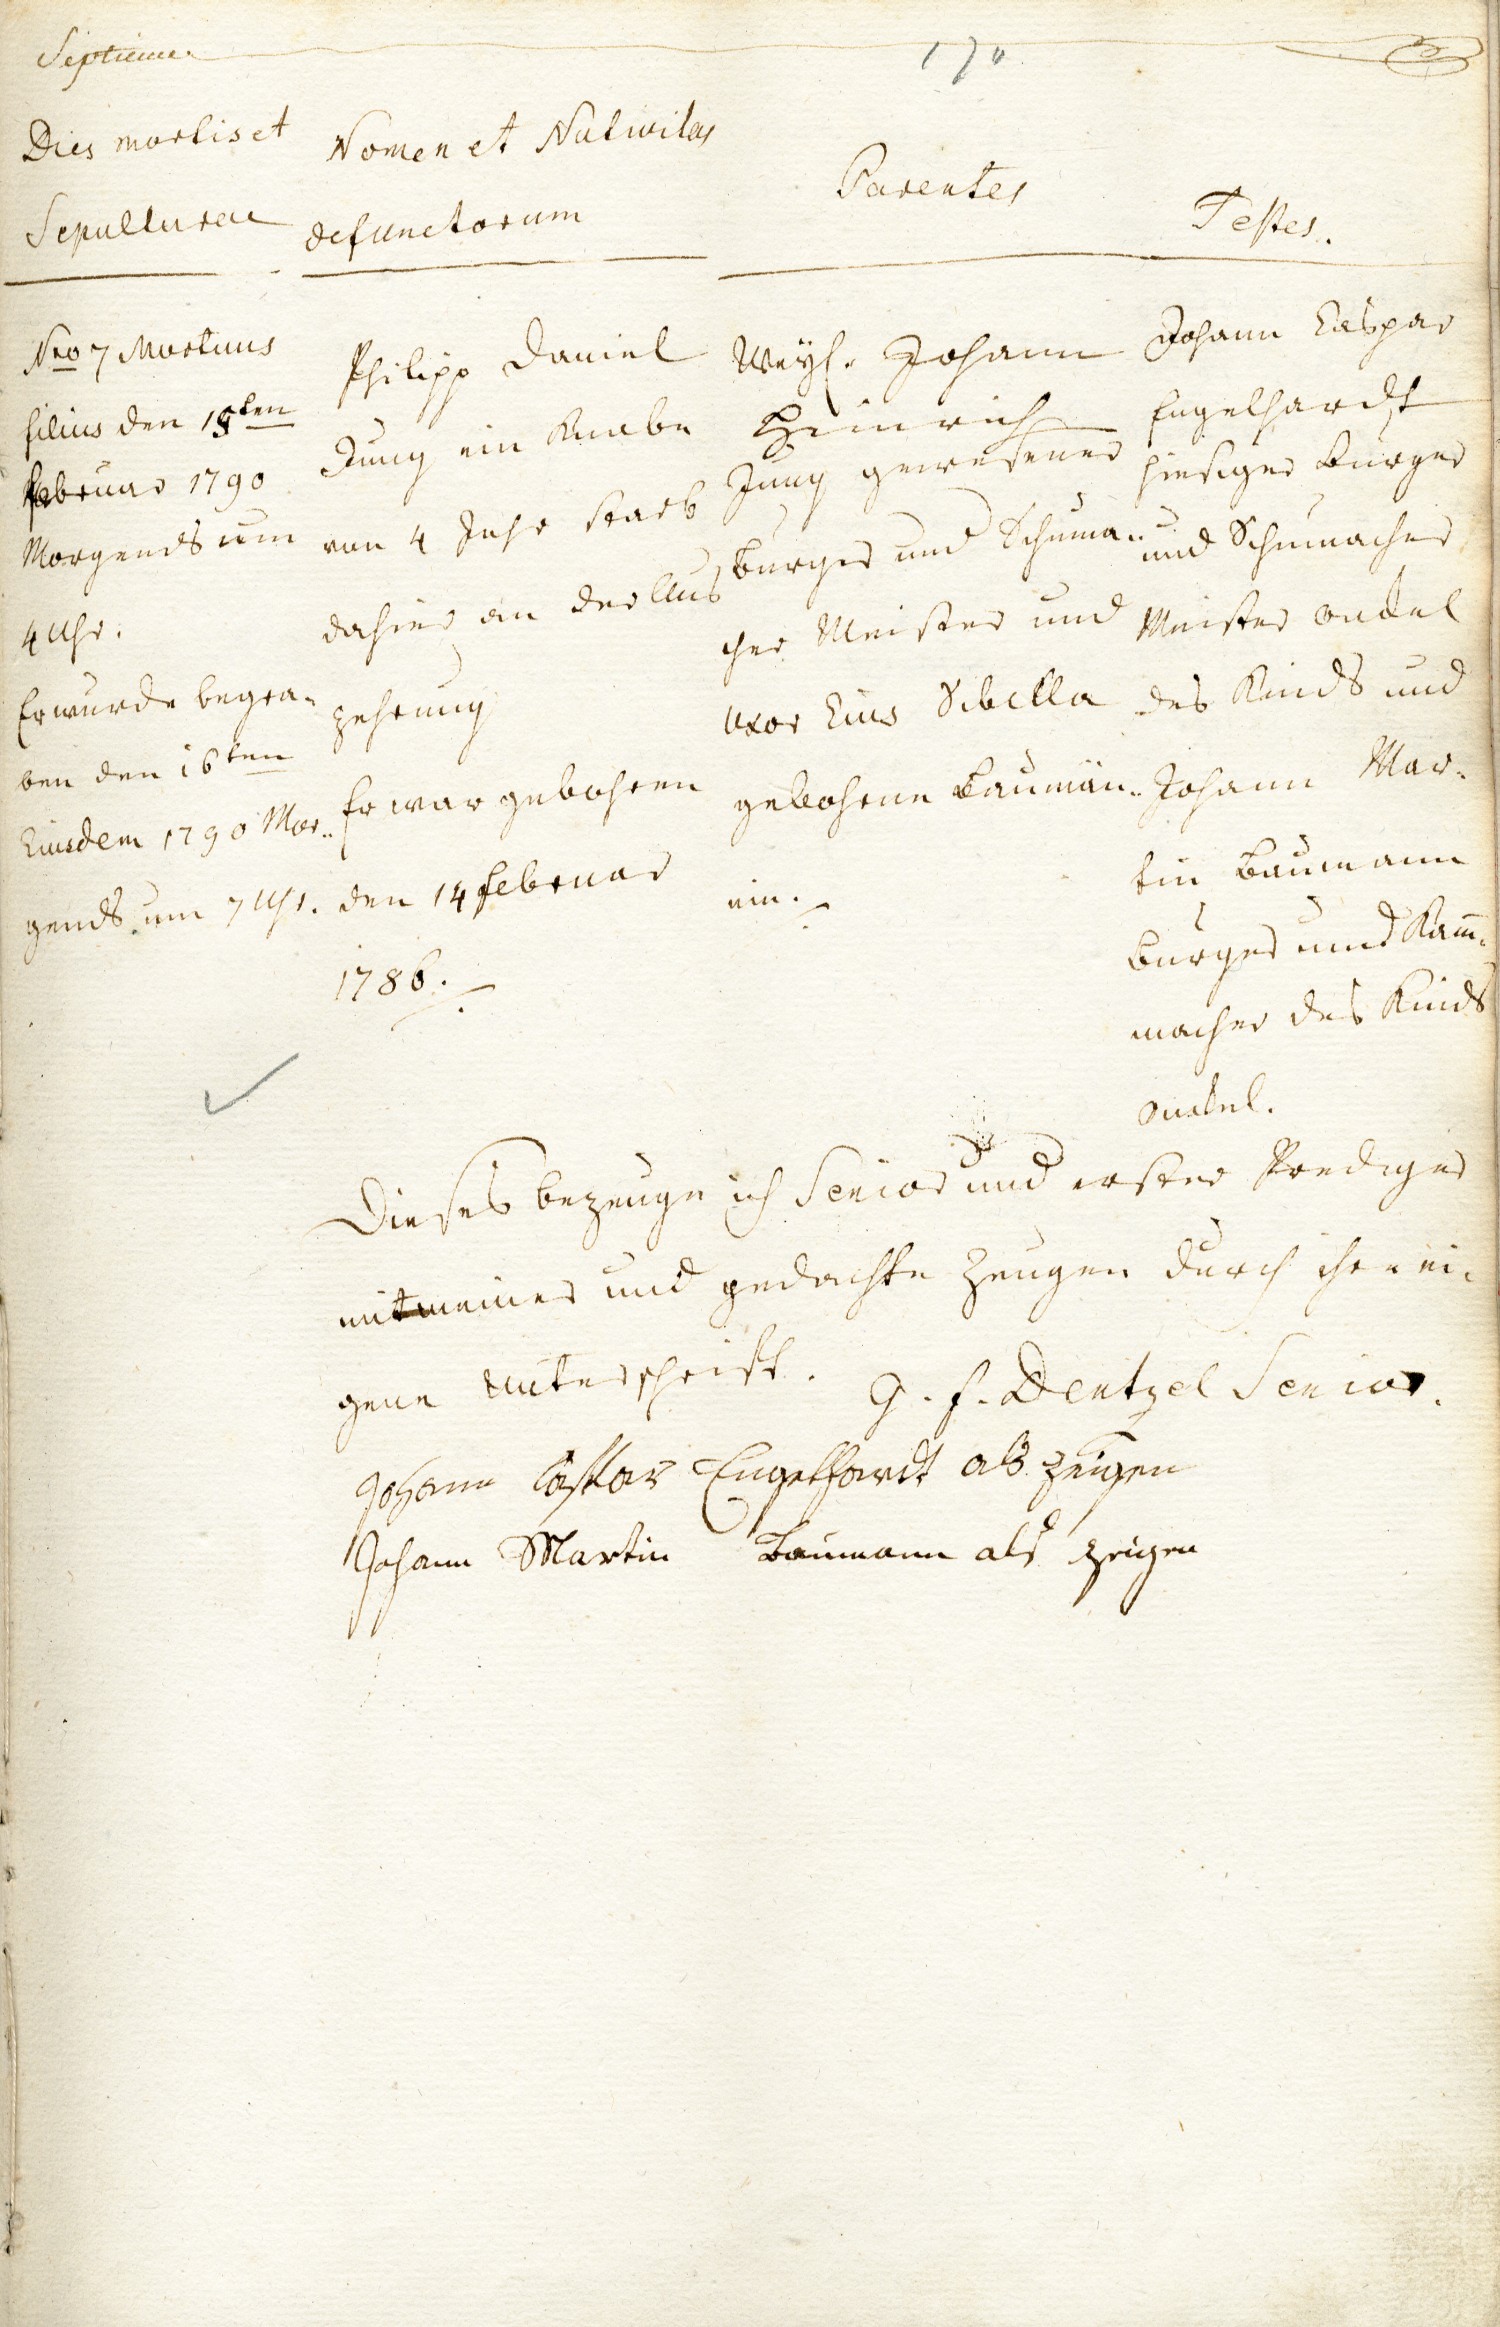 Septieme
170
Dies mortis et
Sepulturae
Nomen et Nativitas
defunctorum
Parentes
Testes.
Nro 7 Mortuus
filius den
Februar 1790
Morgends um
4 Uhr.
Er wurde begra-
ben den 16ten
Eiusdem 1790 Mor-
gends um 7 Uhr.
Philipp Daniel
Jung ein Knabe
von 4 Jahr starb
dahier an der Aus
zehrung
Er war gebohren
den 14 Februar
1786.
Weyl. Johann
Heinrich
Jung gewesener
Burger und Schuma-
cher Meister und
Uxor Eius Sibilla
gebohrne Baumän-
nin.
Johann Caspar
Engelhardt
hiesiger Burger
und Schumacher
Meister onckel
des Kinds und
Johann Mar-
tin Baumann
Burger und Kam̅-
macher des Kinds
onckel.
Dieses bezeuge ich Senior und erster Prediger
mit meiner und gedachte Zeugen durch ihre ei-
gene Unterschrift. G. F. Dentzel Senior.
Johann Casbar Engelhardt als zeigen
Johann Martin Baumann als zeigen